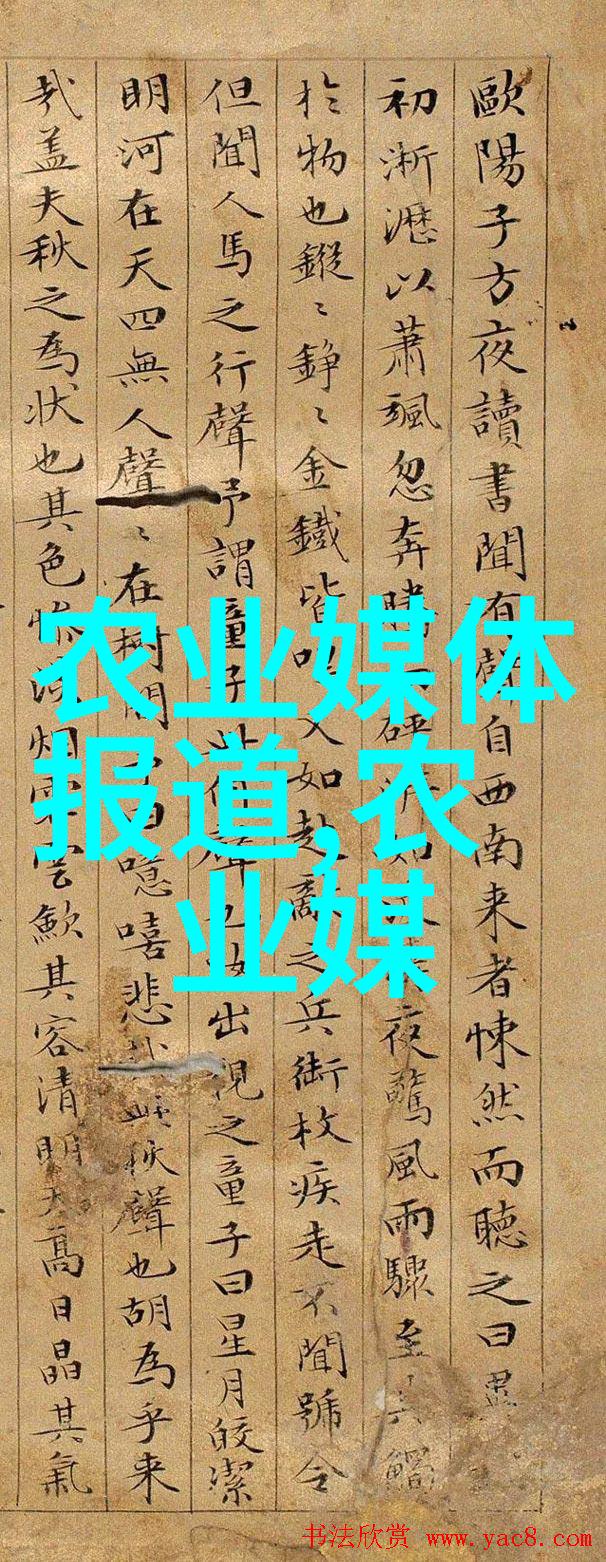 歐陽子方夜讀書聞有聲自西南来者悚然而聽之曰異
初淅瀝以蕭颯忽奔騰砰湃如夜驚風雨驟至其觸
於物也鏦〻錚〻金鐵皆鳴又如赴敵之兵銜枚疾走不聞號令
但聞人馬之行聲予謂童子此何聲也汝出視之童子曰星月皎潔
明河在天四無人聲〻在樹間曰噫嘻悲哉秋聲也胡為乎来
哉盖夫秋之為狀也其色惨淡烟霏雲歛其容清明天高日晶其氣
农业媒体
报道,农
业媒
书法欣赏 www.yac8.com